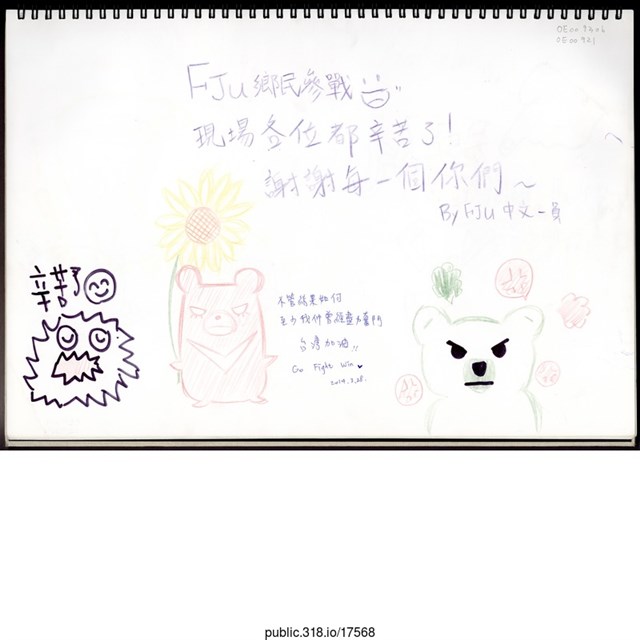 OE00 9206
OE00 921
FJU 鄉民參戰
現場各位都辛苦了!
謝謝每一個你們~
By FJU 中文一員
辛苦了
不管結果如何
至少我們曾經奮鬥
台灣加油!!
Go Fight Win
2014.3.28.
public.318.io/17568